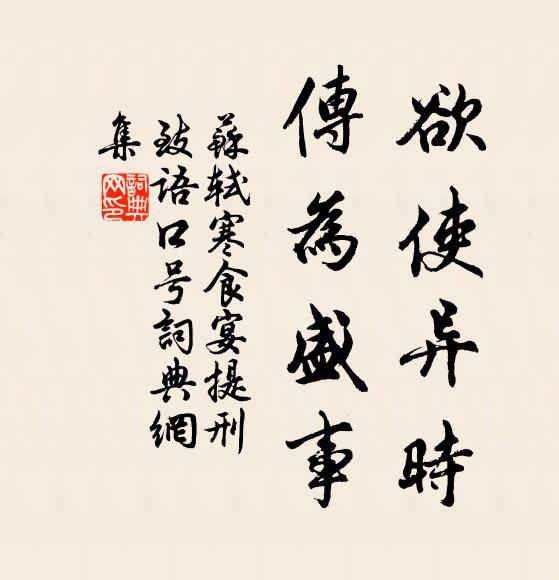 欲使异時
傳為盛事
蘇軾寒食宴提刑
致語口号詞典網
集
詞典
网印